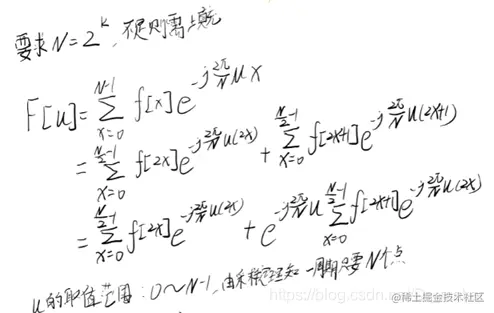 要求 N=2^k, 不足则需上就
F[u]=∑_{x=0}^{N-1} f[x]e^{-j\frac{2π}{N}ux}
=∑_{x=0}^{\frac{N}{2}-1} f[2x]e^{-j\frac{2π}{N}u(2x)} + ∑_{x=0}^{\frac{N}{2}-1} f[2x+1]e^{-j\frac{2π}{N}u(2x+1)}
=∑_{x=0}^{\frac{N}{2}-1} f[2x]e^{-j\frac{2π}{N}u(2x)} + e^{-j\frac{2π}{N}u} ∑_{x=0}^{\frac{N}{2}-1} f[2x+1]e^{-j\frac{2π}{N}u(2x)}
u的取值范围: 0~N-1, 由采样定理知一周期只要N个点
https://blog.csdn.net/
@稀土掘金技术社区